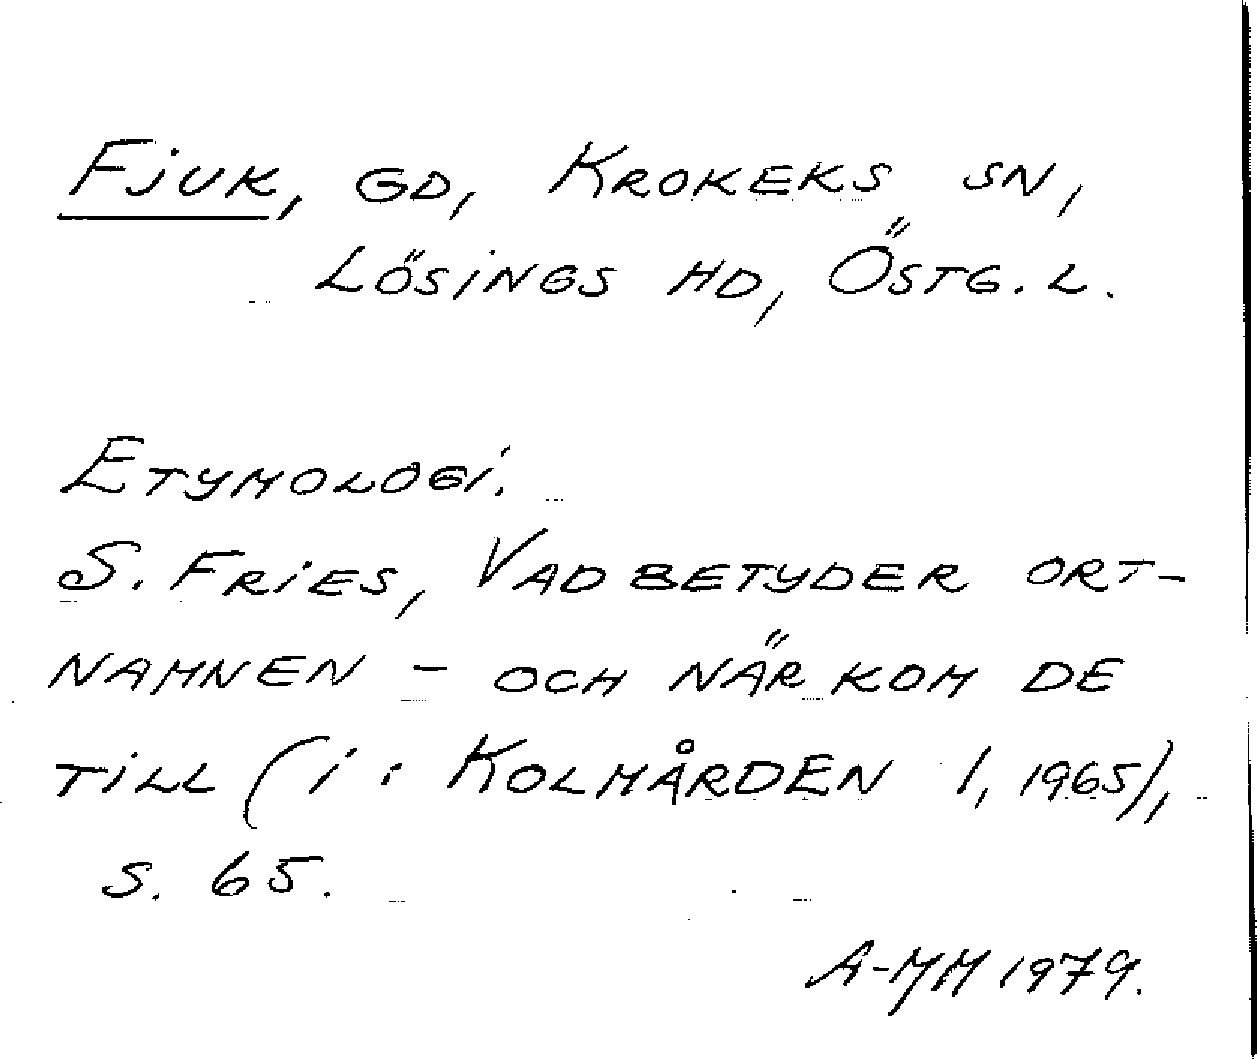 Fjuk, gd, Krokeks sn,
Lösings hd, Östg. l.
Etymologi.
S. Fries, Vad betyder ort-
namnen – och när kom de
till (i: Kolmården 1, 1965),
s. 65.
A-MM 1979.